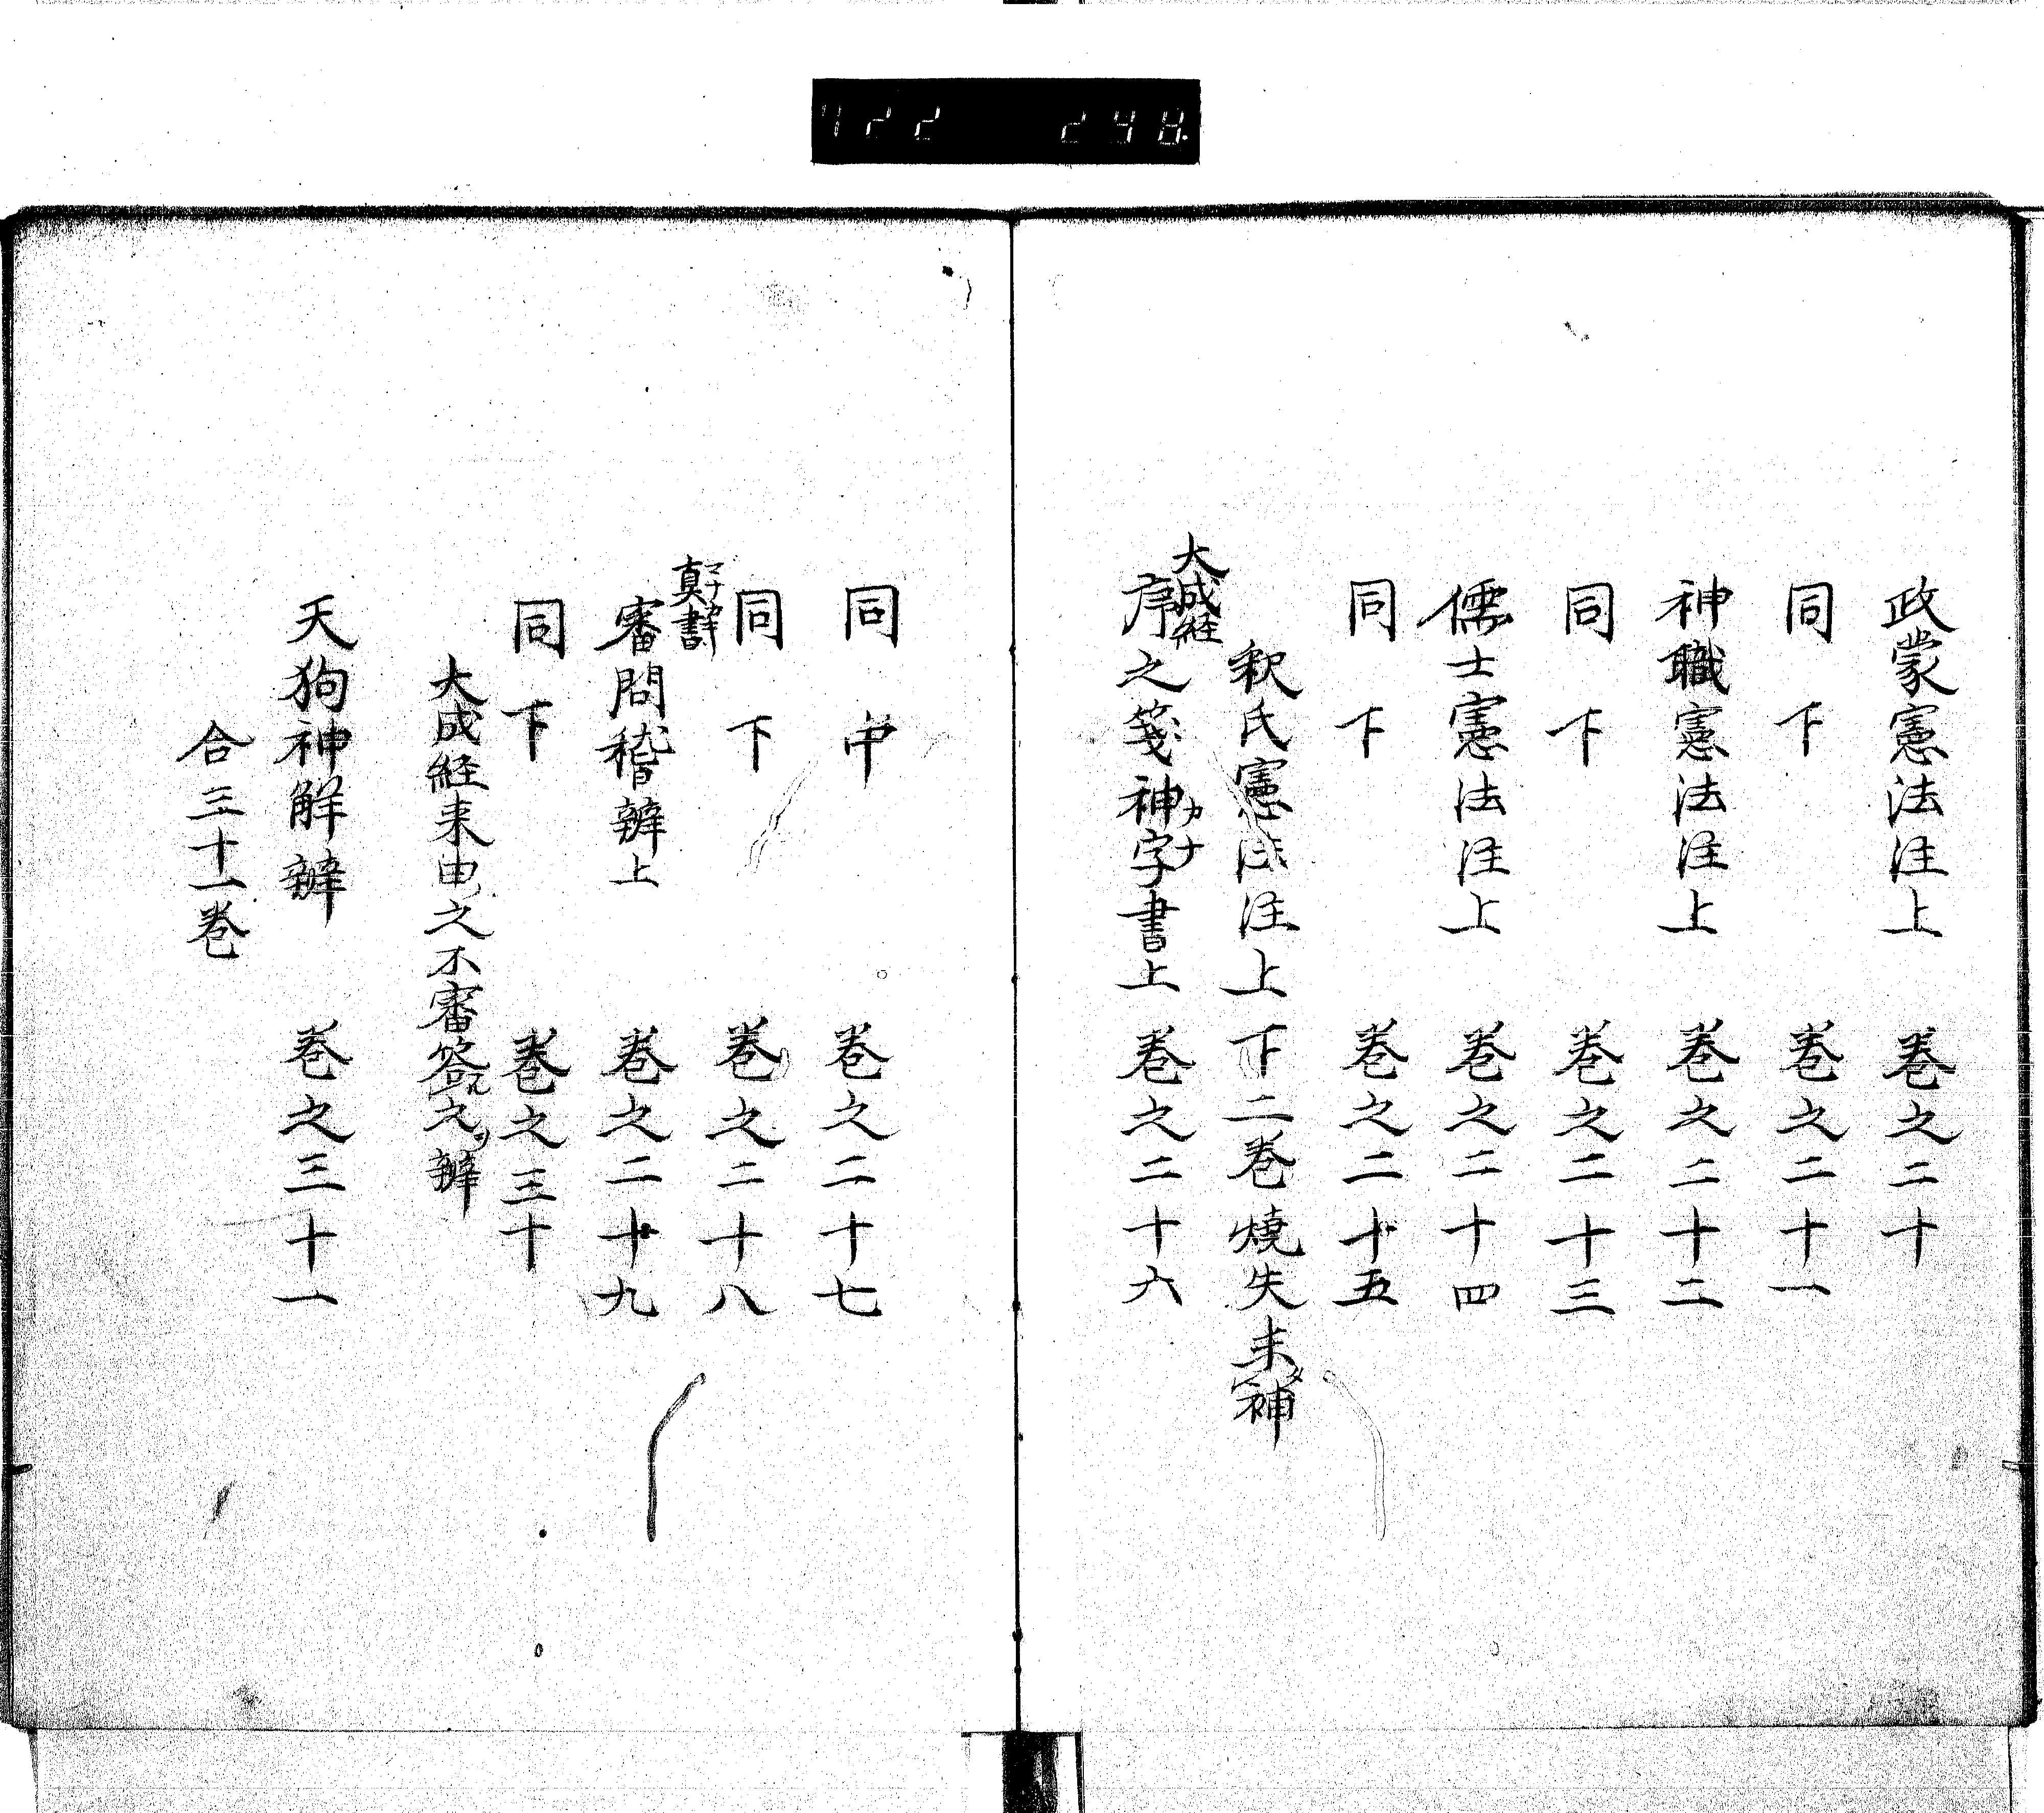 722 248
政蒙憲法注上 巻之二十
同下 巻之二十一
神職憲法注上 巻之二十二
同下 巻之二十三
儒士憲法注上 巻之二十四
同下 巻之二十五
釈氏憲法注上下二巻焼失未補
大成経
序之箋神字書上 巻之二十六
カナ
同中 巻之二十七
同下 巻之二十八
真字書
マナ
審問稽辨上 巻之二十九
同下 巻之三十
大成経来由之不審答之辨
天狗神解辨 巻之三十一
合三十一巻